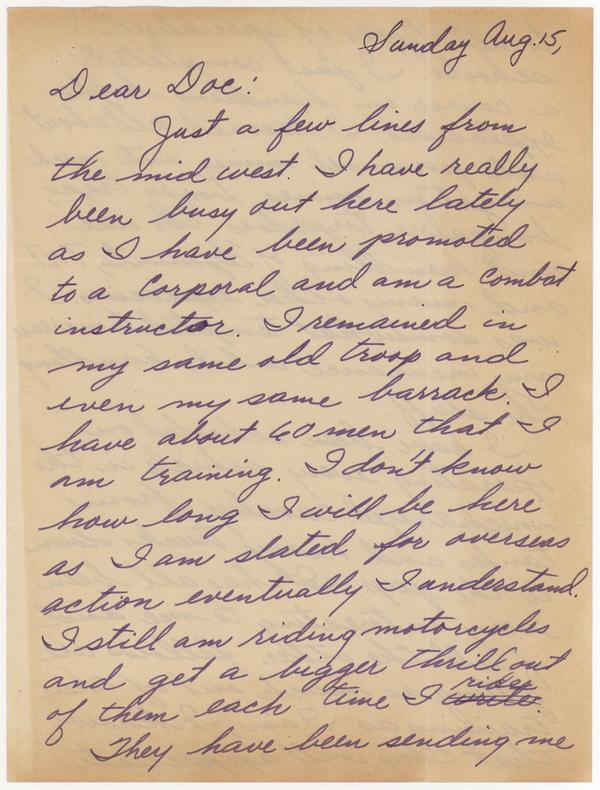 Sunday Aug. 15,
Dear Doc:
Just a few lines from
the mid west. I have really
been busy out here lately
as I have been promoted
to a Corporal and am a combat
instructor. I remained in
my same old troop and
even my same barrack. I
have about 60 men that I
am training. I don't know
how long I will be here
as I am slated for overseas
action eventually I understand.
I still am riding motorcycles
and get a bigger thrill out
of them each time I write rides.
They have been sending me